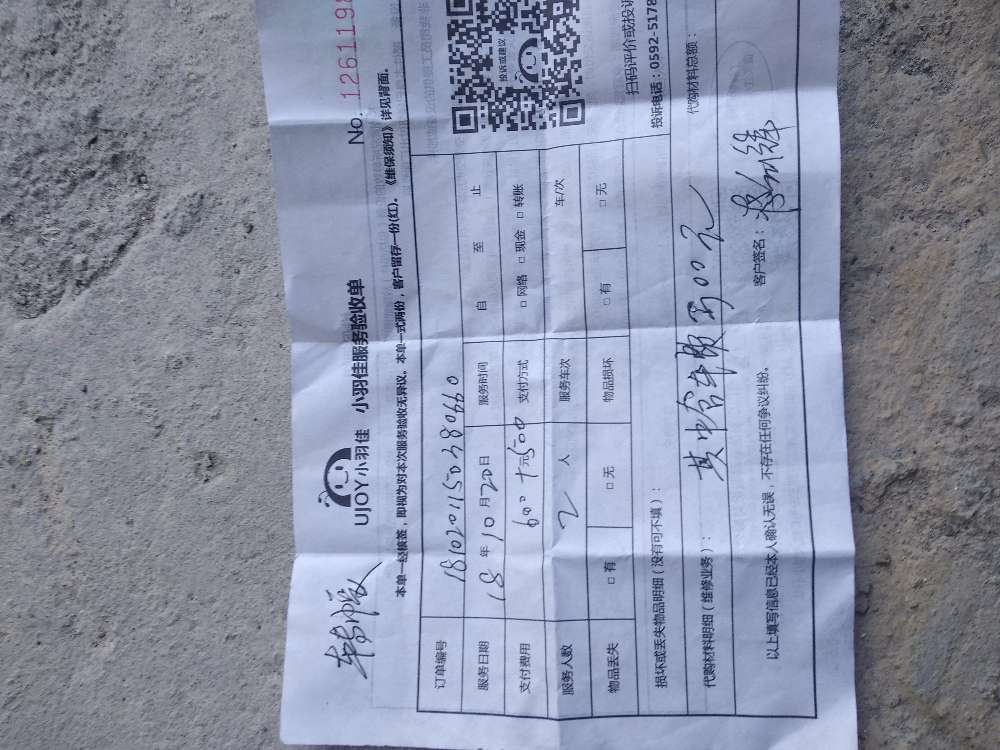 UJOY小羽佳 小羽佳服务验收单
No. 1261198
本单一经核签，即视为对本次服务验收无异议。本单一式两份，客户留存一份(红)。《维保须知》详见背面。
订单编号 181020115048090
服务日期 18 年 10 月 20 日 服务时间 自 至 止
支付费用 600 + 元500 支付方式 □ 网络 □ 现金 □ 转账
服务人数 2 人 服务车次 车/次
物品丢失 □ 有 □ 无 物品损坏 □ 有 □ 无
投诉或建议
扫码评价或投诉
投诉电话：0592-5178
损坏或丢失物品明细（没有可不填）：
代购材料明细（维修业务）： 代购材料总额：
其中含车服500元
以上填写信息已经本人确认无误，不存在任何争议纠纷。 客户签名：